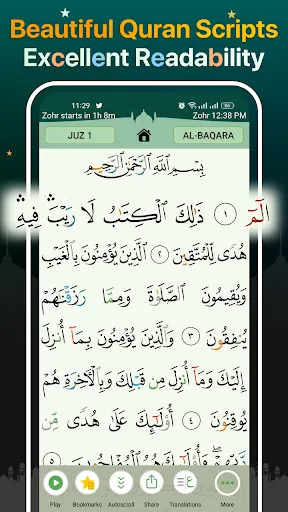 Beautiful Quran Scripts
Excellent Readability
11:29
Zohr starts in 1h 8m
Zohr 12:38 PM
JUZ 1
AL-BAQARA
بِسْمِ ٱللَّهِ ٱلرَّحْمَٰنِ ٱلرَّحِيمِ
الٓمٓ ١ ذَٰلِكَ ٱلْكِتَٰبُ لَا رَيْبَ ۛ فِيهِ ۛ
هُدًى لِّلْمُتَّقِينَ ٢ ٱلَّذِينَ يُؤْمِنُونَ بِٱلْغَيْبِ
وَيُقِيمُونَ ٱلصَّلَوٰةَ وَمِمَّا رَزَقْنَٰهُمْ
يُنفِقُونَ ٣ وَٱلَّذِينَ يُؤْمِنُونَ بِمَآ أُنزِلَ
إِلَيْكَ وَمَآ أُنزِلَ مِن قَبْلِكَ وَبِٱلْءَاخِرَةِ هُمْ
يُوقِنُونَ ٤ أُو۟لَٰٓئِكَ عَلَىٰ هُدًى مِّن
Play Bookmarks Autoscroll Share Translations More